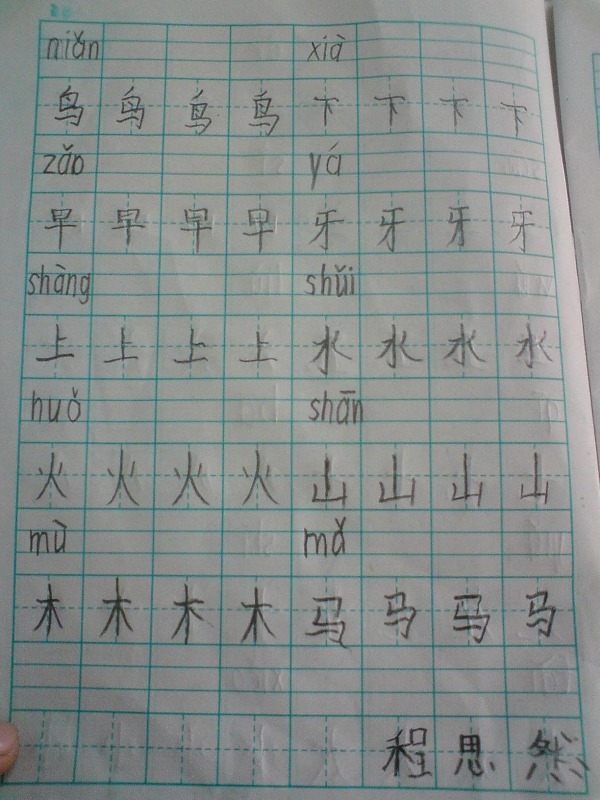 niǎn xià
鸟 鸟 鸟 鸟 下 下 下 下
zǎo yá
早 早 早 早 牙 牙 牙 牙
shàng shǔi
上 上 上 上 水 水 水 水
huǒ shān
火 火 火 火 山 山 山 山
mù mǎ
木 木 木 木 马 马 马 马
程 思 然